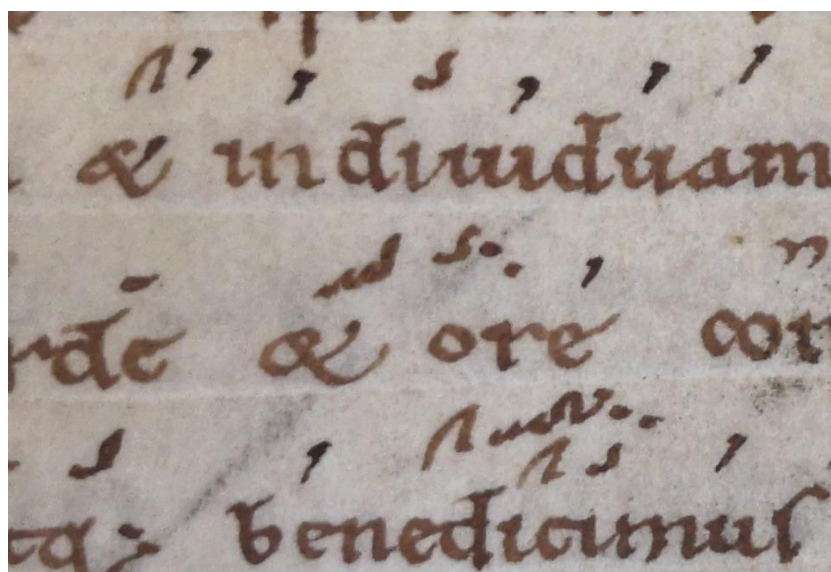 & indiuiduam
& ore con
benedicimus